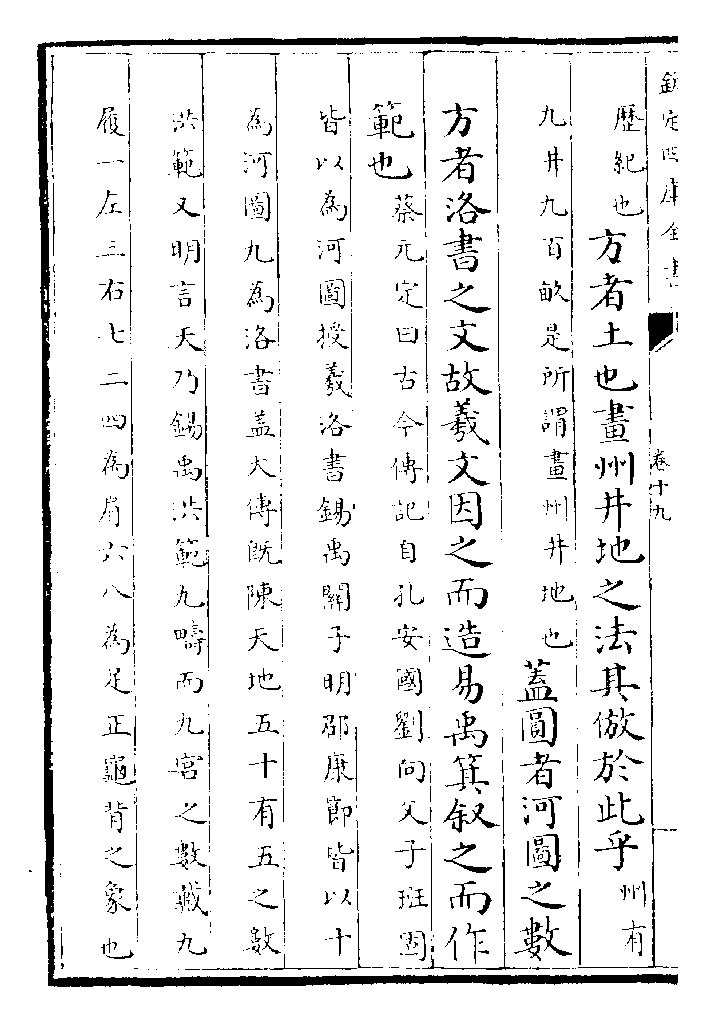 欽定四庫全書
卷十九
歷紀也方者土也畫州井地之法其倣於此乎州有
九井九百畝是所謂畫州井地也蓋圓者河圖之數
方者洛書之文故羲文因之而造易禹箕叙之而作
範也蔡元定曰古今傳記自孔安國劉向父子班固
皆以為河圖授羲洛書錫禹關子明邵康節皆以十
為河圖九為洛書蓋大傳既陳天地五十有五之數
洪範又明言天乃錫禹洪範九疇而九宮之數戴九
履一左三右七二四為肩六八為足正龜背之象也